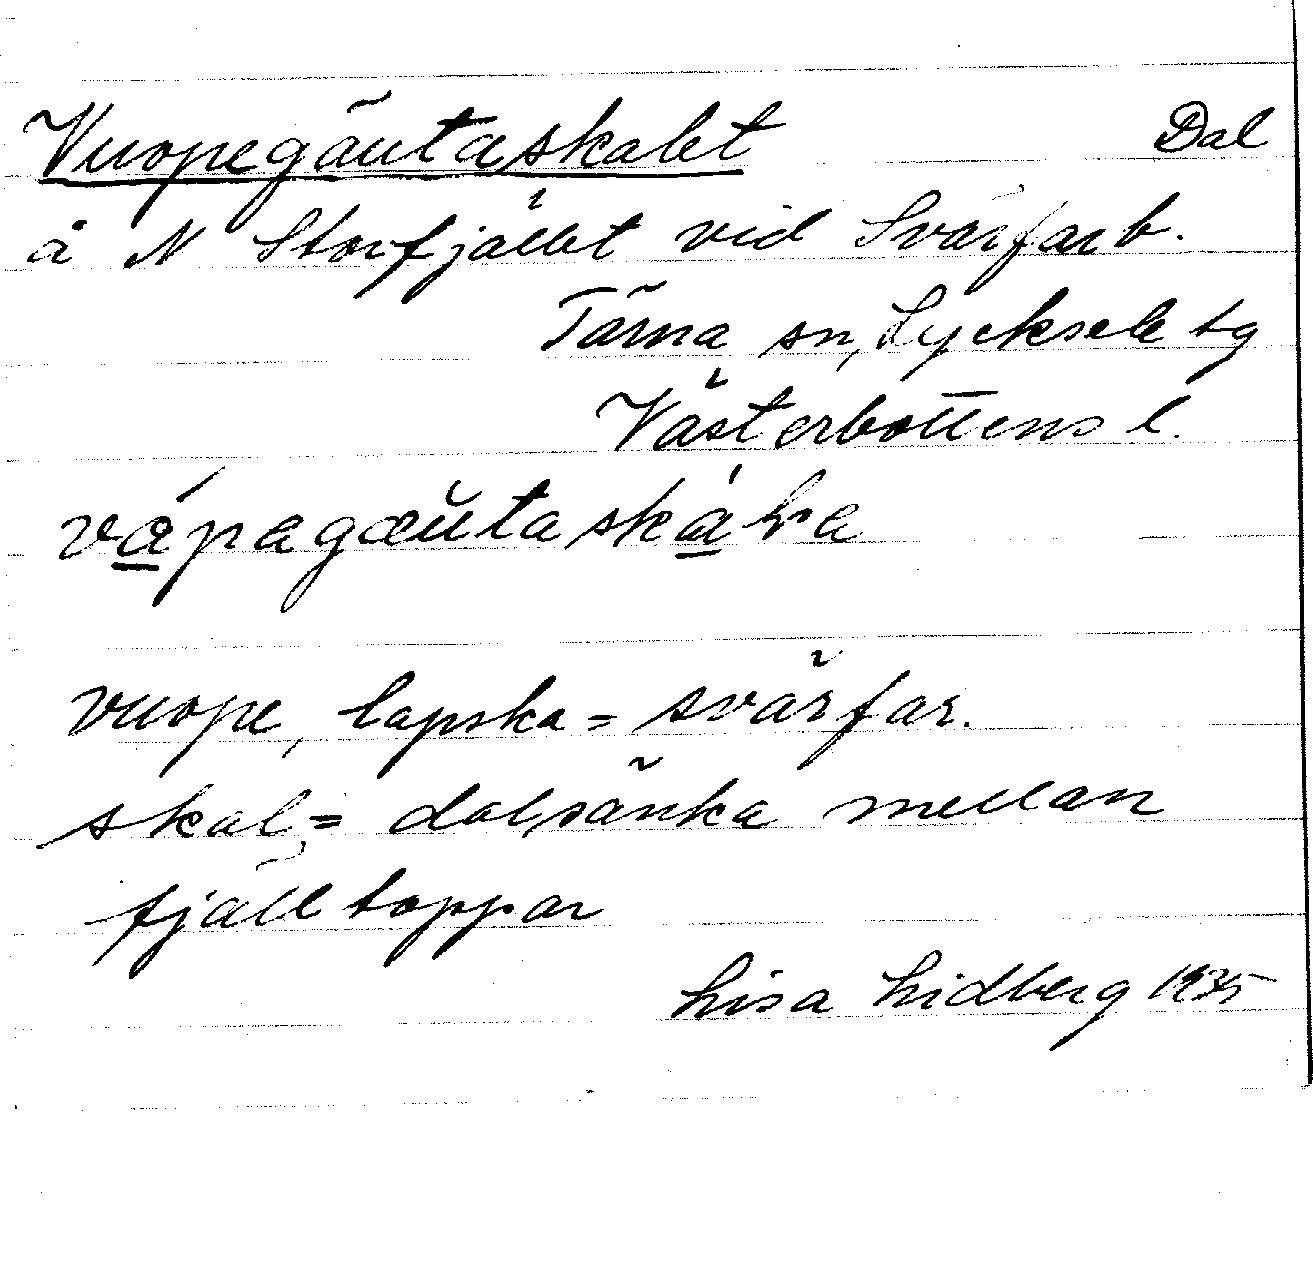 Vuopegäutaskalet Dal
å N Storfjället vid Svärfarb.
Tärna sn, Lycksele tg
Västerbottens l.
vuope, lapska = svärfar.
skal = dal, sänka mellan
fjälltoppar
Lisa Lidberg 1935